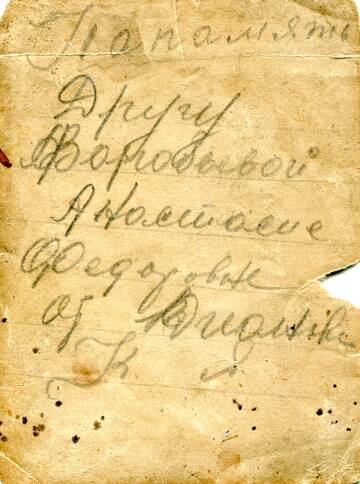 На память
Другу
Воробьевой
Анастасие
Федоровне
от
К